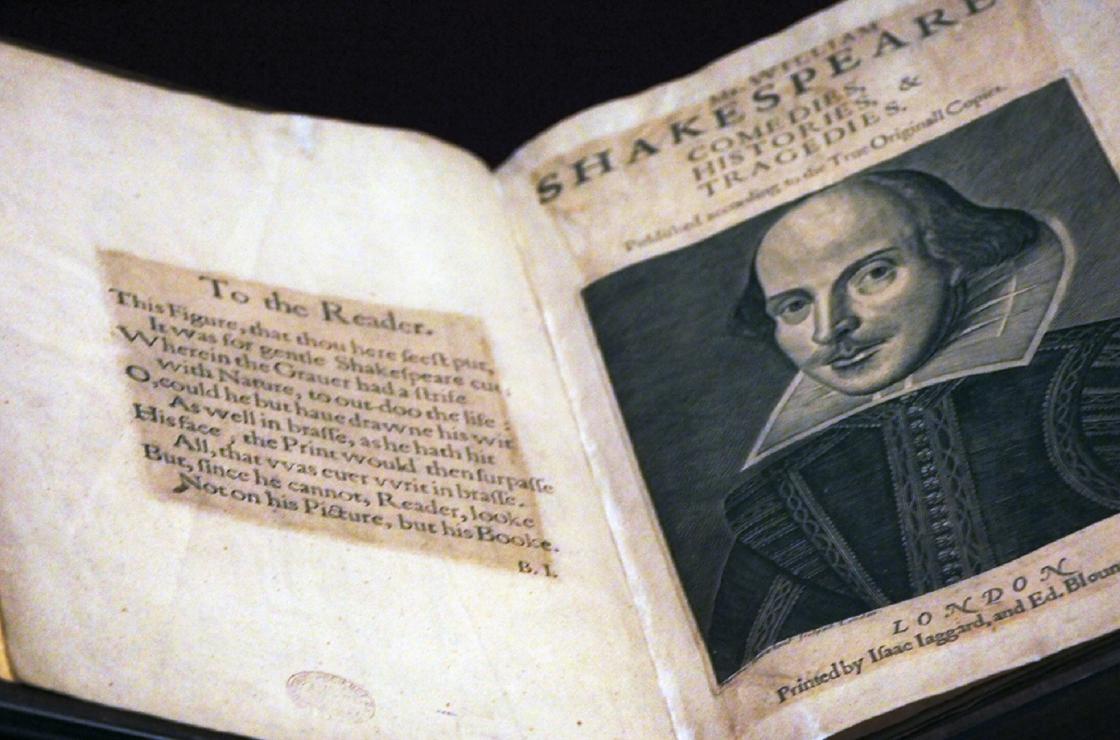 To the Reader.
This Figure, that thou here ſeeſt put,
It was for gentle Shakeſpeare cut,
Wherein the Grauer had a ſtrife
with Nature, to out-doo the life:
O, could he but haue drawne his wit
As well in braſſe, as he hath hit
His face, the Print would then ſurpaſſe
All, that vvas euer vvrit in braſſe.
But, ſince he cannot, Reader, looke
Not on his Picture, but his Booke.
B. I.
Mr. WILLIAM
SHAKESPEARE
COMEDIES,
HISTORIES, &
TRAGEDIES.
Publiſhed according to the True Originall Copies.
LONDON
Printed by Iſaac Iaggard, and Ed. Bloun